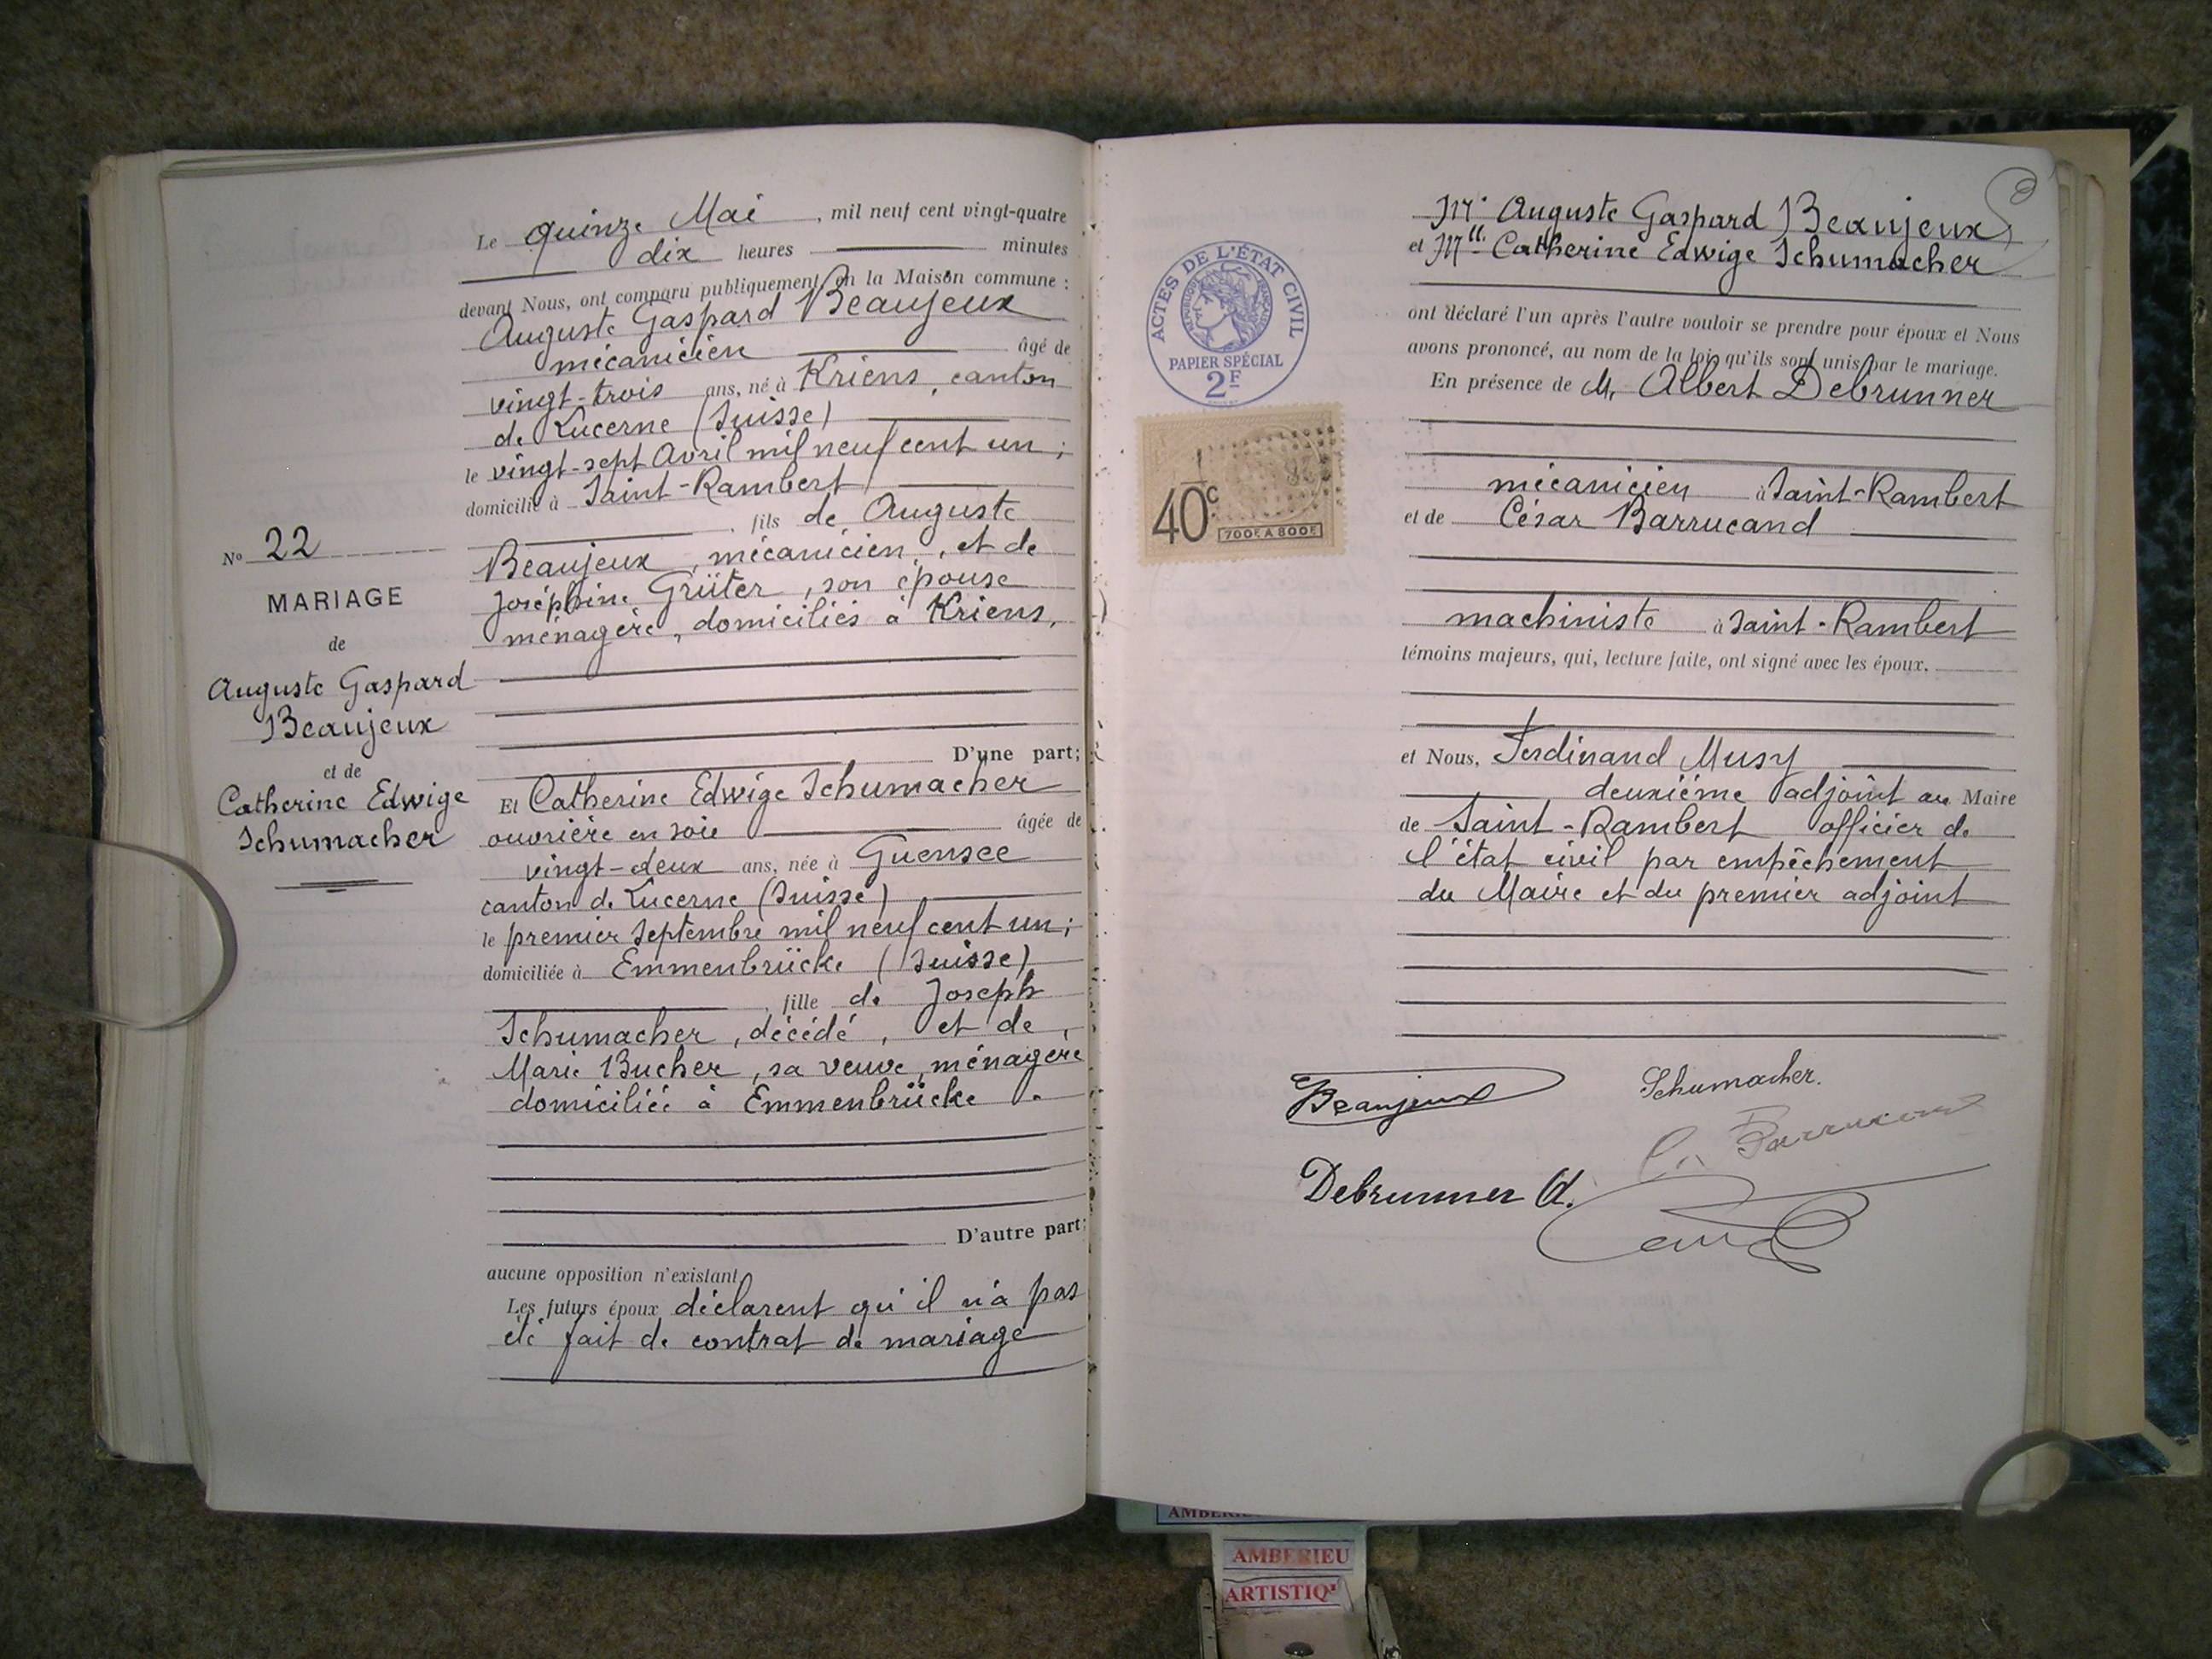 Le quinze Mai, mil neuf cent vingt-quatre
dix heures minutes
devant Nous, ont comparu publiquement en la Maison commune :
Auguste Gaspard Beaujeux
mécanicien âgé de
vingt-trois ans, né à Kriens, canton
de Lucerne (Suisse)
le vingt-sept Avril mil neuf cent un ;
domicilié à Saint-Rambert
, fils de Auguste
Beaujeux, mécanicien, et de
Joséphine Grüter, son épouse
ménagère, domiciliés à Kriens,
D'une part;
N° 22
MARIAGE
de
Auguste Gaspard
Beaujeux
et de
Catherine Edwige
Schumacher
Et Catherine Edwige Schumacher
ouvrière en soie âgée de
vingt-deux ans, née à Guensee
canton de Lucerne (Suisse)
le premier Septembre mil neuf cent un ;
domiciliée à Emmenbrücke (Suisse)
, fille de Joseph
Schumacher, décédé, et de
Marie Bucher, sa veuve, ménagère
domiciliée à Emmenbrücke.
D'autre part;
aucune opposition n'existant
Les futurs époux déclarent qu'il n'a pas
été fait de contrat de mariage
ACTES DE L'ÉTAT CIVIL
RÉPUBLIQUE FRANÇAISE
PAPIER SPÉCIAL
2F
40c
700F. A 800F.
Mr Auguste Gaspard Beaujeux
et Mlle Catherine Edwige Schumacher
ont déclaré l'un après l'autre vouloir se prendre pour époux et Nous
avons prononcé, au nom de la loi, qu'ils sont unis par le mariage.
En présence de M. Albert Debrunner
mécanicien à Saint-Rambert
et de César Barrucand
machiniste à Saint-Rambert
témoins majeurs, qui, lecture faite, ont signé avec les époux.
et Nous, Ferdinand Musy
deuxième adjoint au Maire
de Saint-Rambert officier de
l'état civil par empêchement
du Maire et du premier adjoint
Beaujeux
Schumacher.
Debrunner A.
AMBERIEU
ARTISTIQ